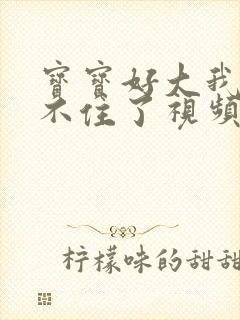 寶寶好大我
不住了視頻
柠檬味的甜甜